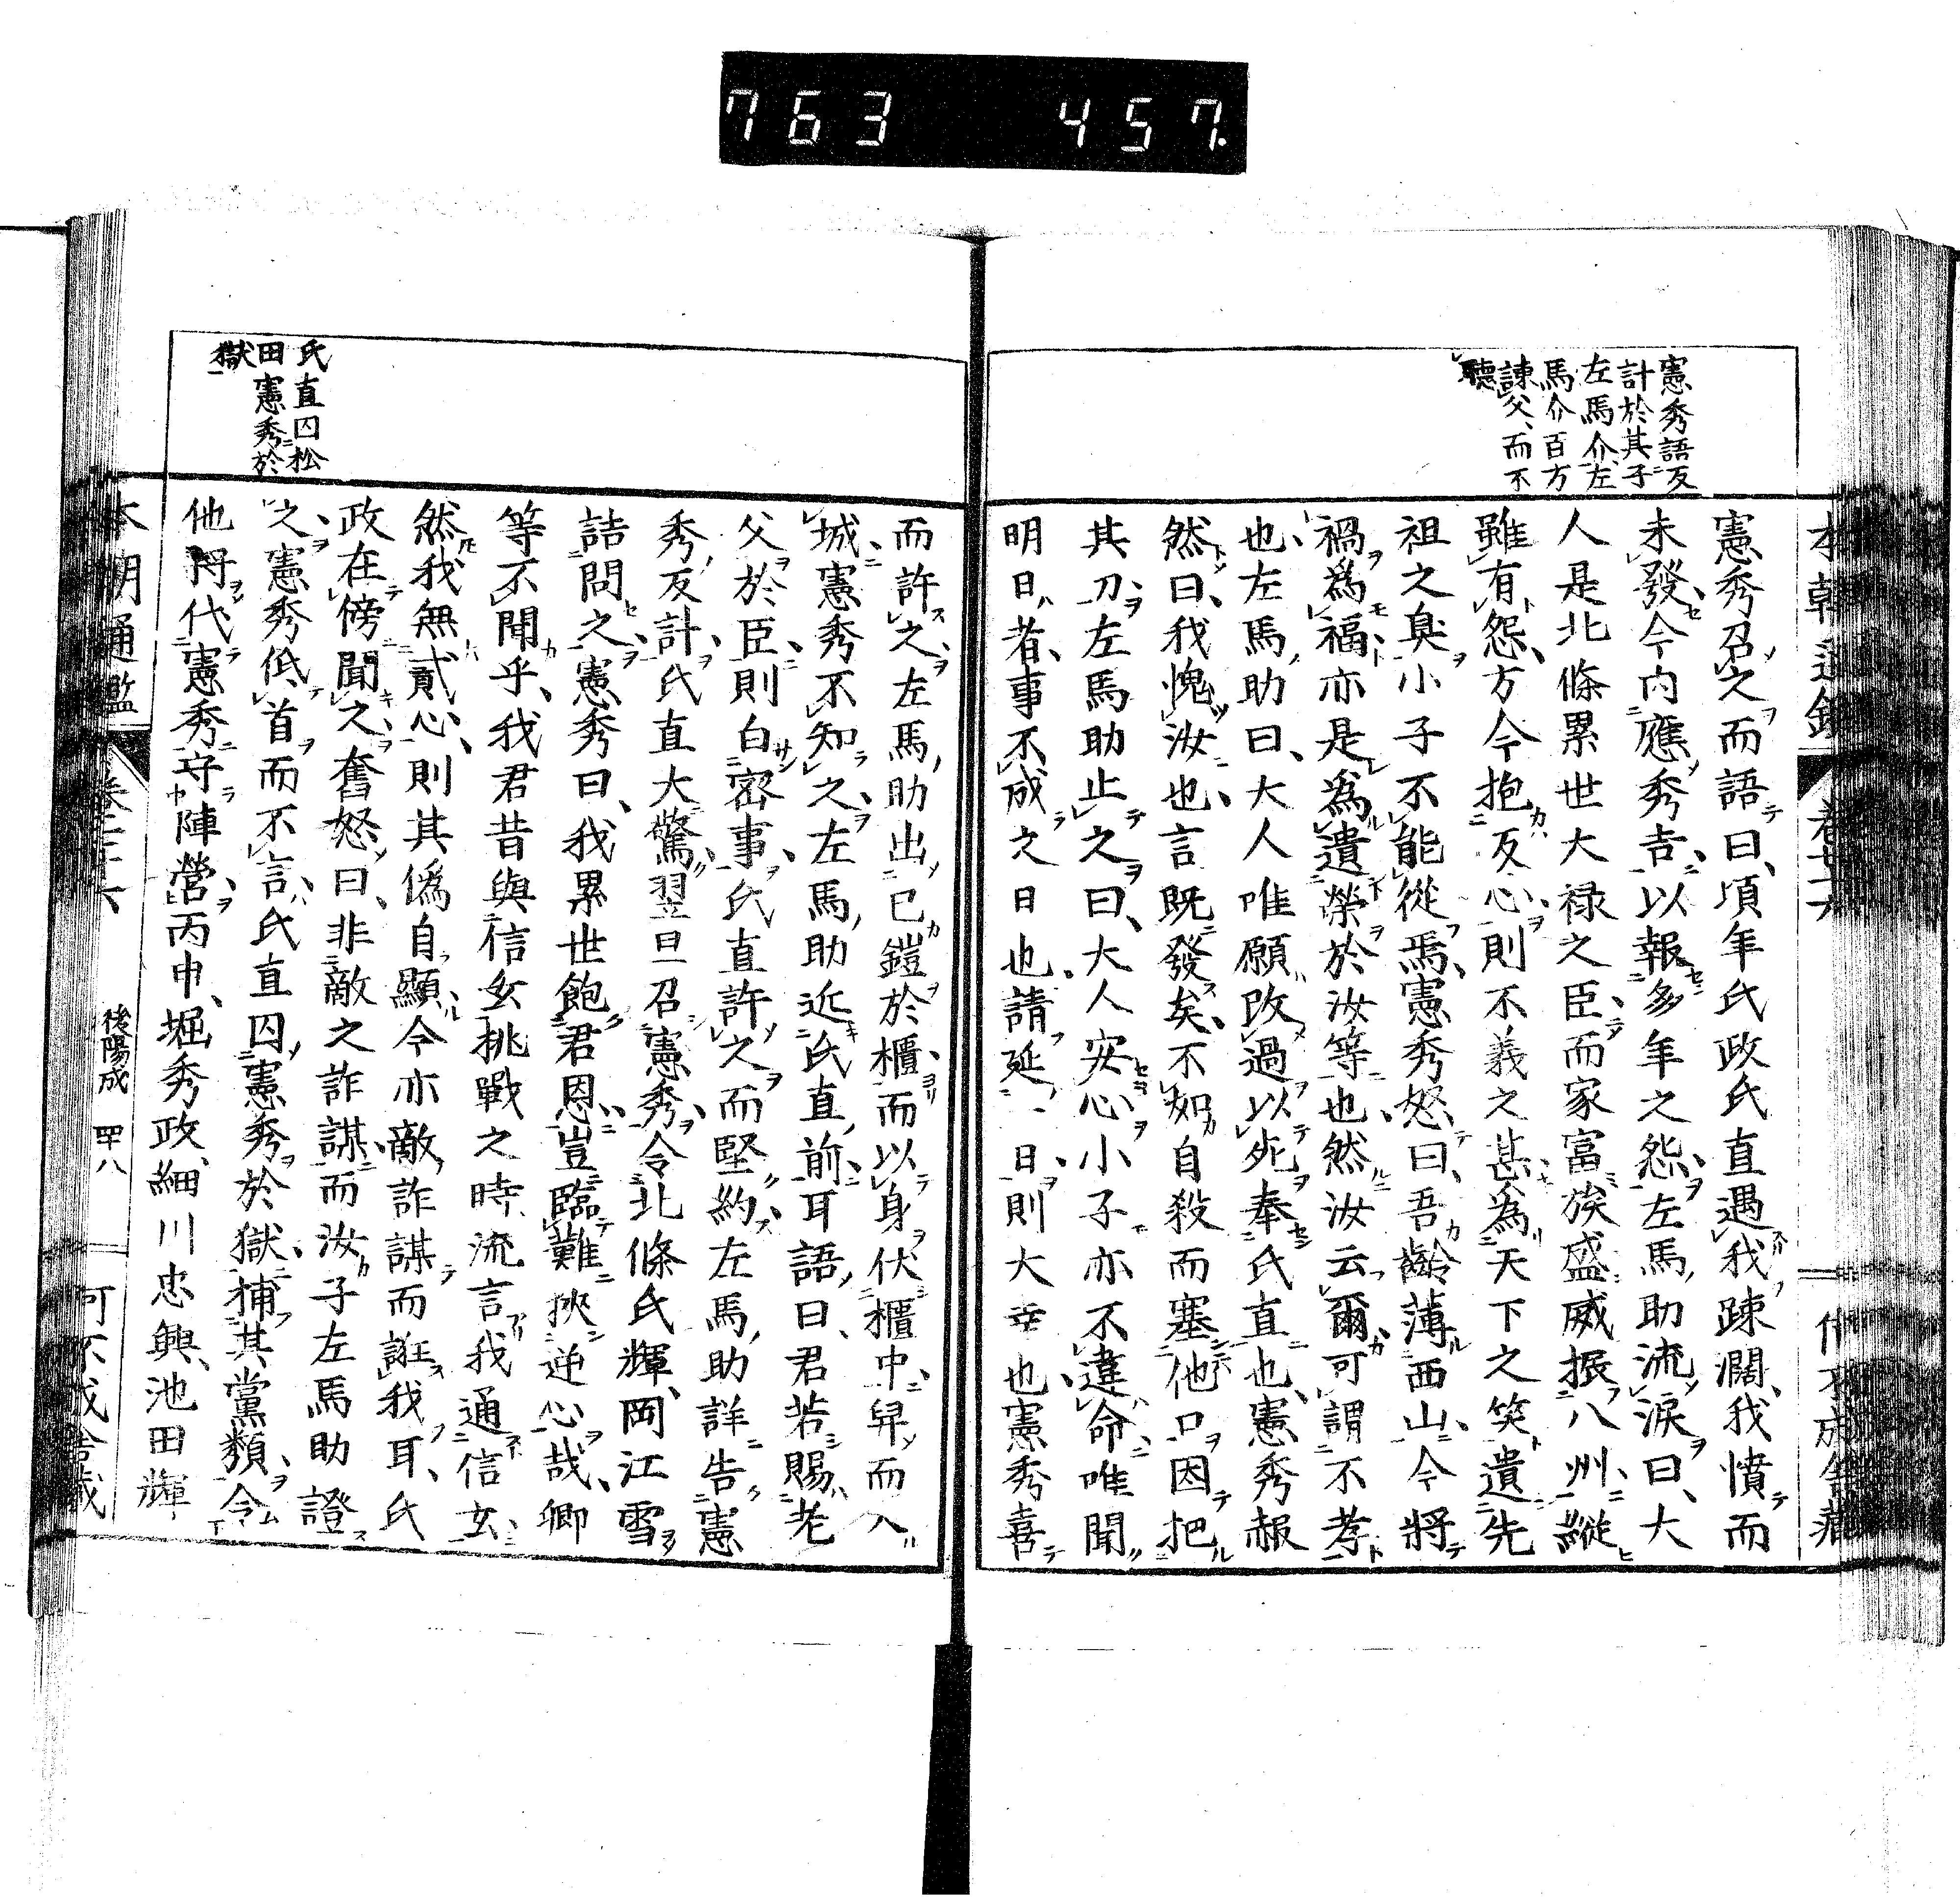 763 457.
憲秀語反
計於其子
左馬介、左
馬介百方
諫父、而不
聽
憲秀召之而語曰、頃年氏政氏直遇我踈濶、我憤而
未發、今内應秀吉、以報多年之怨、左馬助流涙曰、大
人是北條累世大禄之臣、而家富族盛、威振八州、縱
雖有怨、方今抱反心、則不義之甚、為天下之笑、遺先
祖之臭、小子不能從焉、憲秀怒曰、吾齡薄西山、今將
禍為福、亦是為遺榮於汝等也、然汝云爾、可謂不孝
也、左馬助曰、大人唯願改過以死奉氏直也、憲秀赧
然曰、我愧汝也、言既發矣、不如自殺而塞他口、因把
其刀、左馬助止之曰、大人安心、小子亦不違命、唯聞
明日者、事不成之日也、請延一日、則大幸也、憲秀喜
而許之、左馬助出己鎧於櫃、而以身伏櫃中、舁而入
城、憲秀不知之、左馬助近氏直前、耳語曰、君若賜老
父於臣、則白密事、氏直許之而堅約、左馬助詳告憲
秀反計、氏直大驚、翌旦召憲秀、令北條氏輝、岡江雪
詰問之、憲秀曰、我累世飽君恩、豈臨難挾逆心哉、卿
等不聞乎、我君昔與信玄挑戰之時、流言我通信玄、
然我無貳心、則其僞自顯、今亦敵詐謀而誑我耳、氏
政在傍聞之、奮怒曰、非敵之詐謀、而汝子左馬助證
之、憲秀低首而不言、氏直囚憲秀於獄、捕其黨類、令
他將代憲秀守陣營、丙申、堀秀政、細川忠興、池田輝
氏直囚松
田憲秀於
獄
本朝通鑑
後陽成 四十八